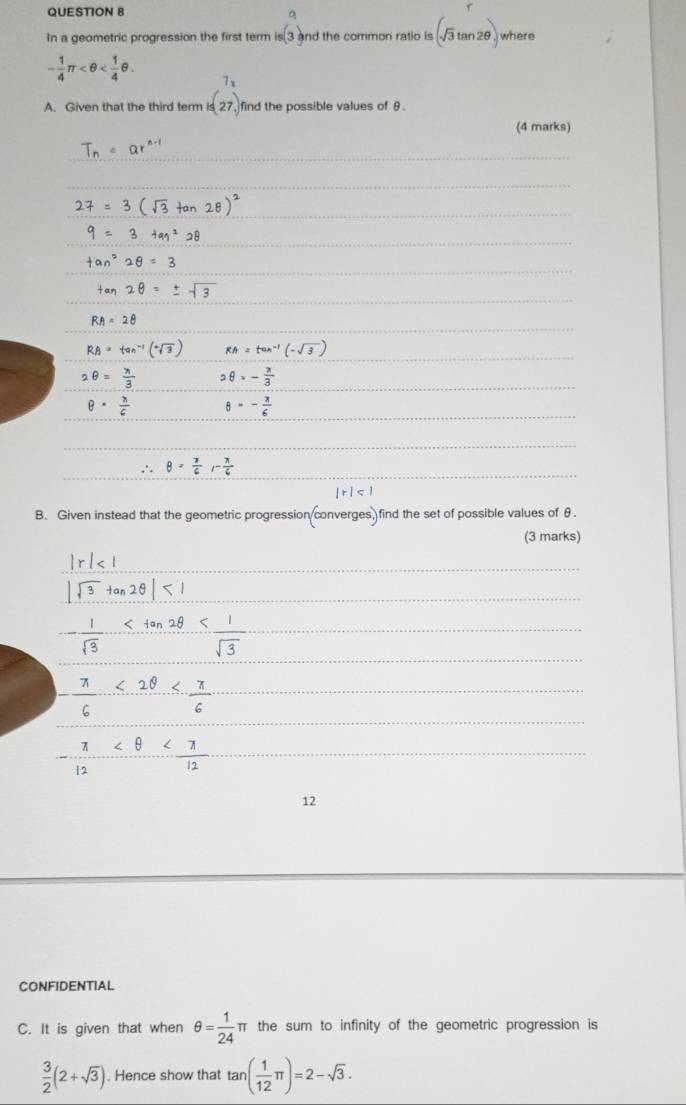 QUESTION 8
a r
In a geometric progression the first term is 3 and the common ratio is (√3 tan 2θ), where
-1/4 π < θ < 1/4 θ.
T₃
A. Given that the third term is 27, find the possible values of θ.
(4 marks)
Tn = ar^(n-1)
27 = 3 (√3 tan 2θ)²
9 = 3 tan² 2θ
tan² 2θ = 3
tan 2θ = ± √3
RA = 2θ
RA = tan⁻¹ (+√3) RA = tan⁻¹ (-√3)
2θ = π/3 2θ = - π/3
θ = π/6 θ = - π/6
∴ θ = π/6 , - π/6
|r| < 1
B. Given instead that the geometric progression converges, find the set of possible values of θ.
(3 marks)
|r| < 1
|√3 tan 2θ| < 1
- 1/√3 < tan 2θ < 1/√3
- π/6 < 2θ < π/6
- π/12 < θ < π/12
12
CONFIDENTIAL
C. It is given that when θ = 1/24 π the sum to infinity of the geometric progression is
3/2 (2 + √3). Hence show that tan(1/12 π) = 2 - √3.